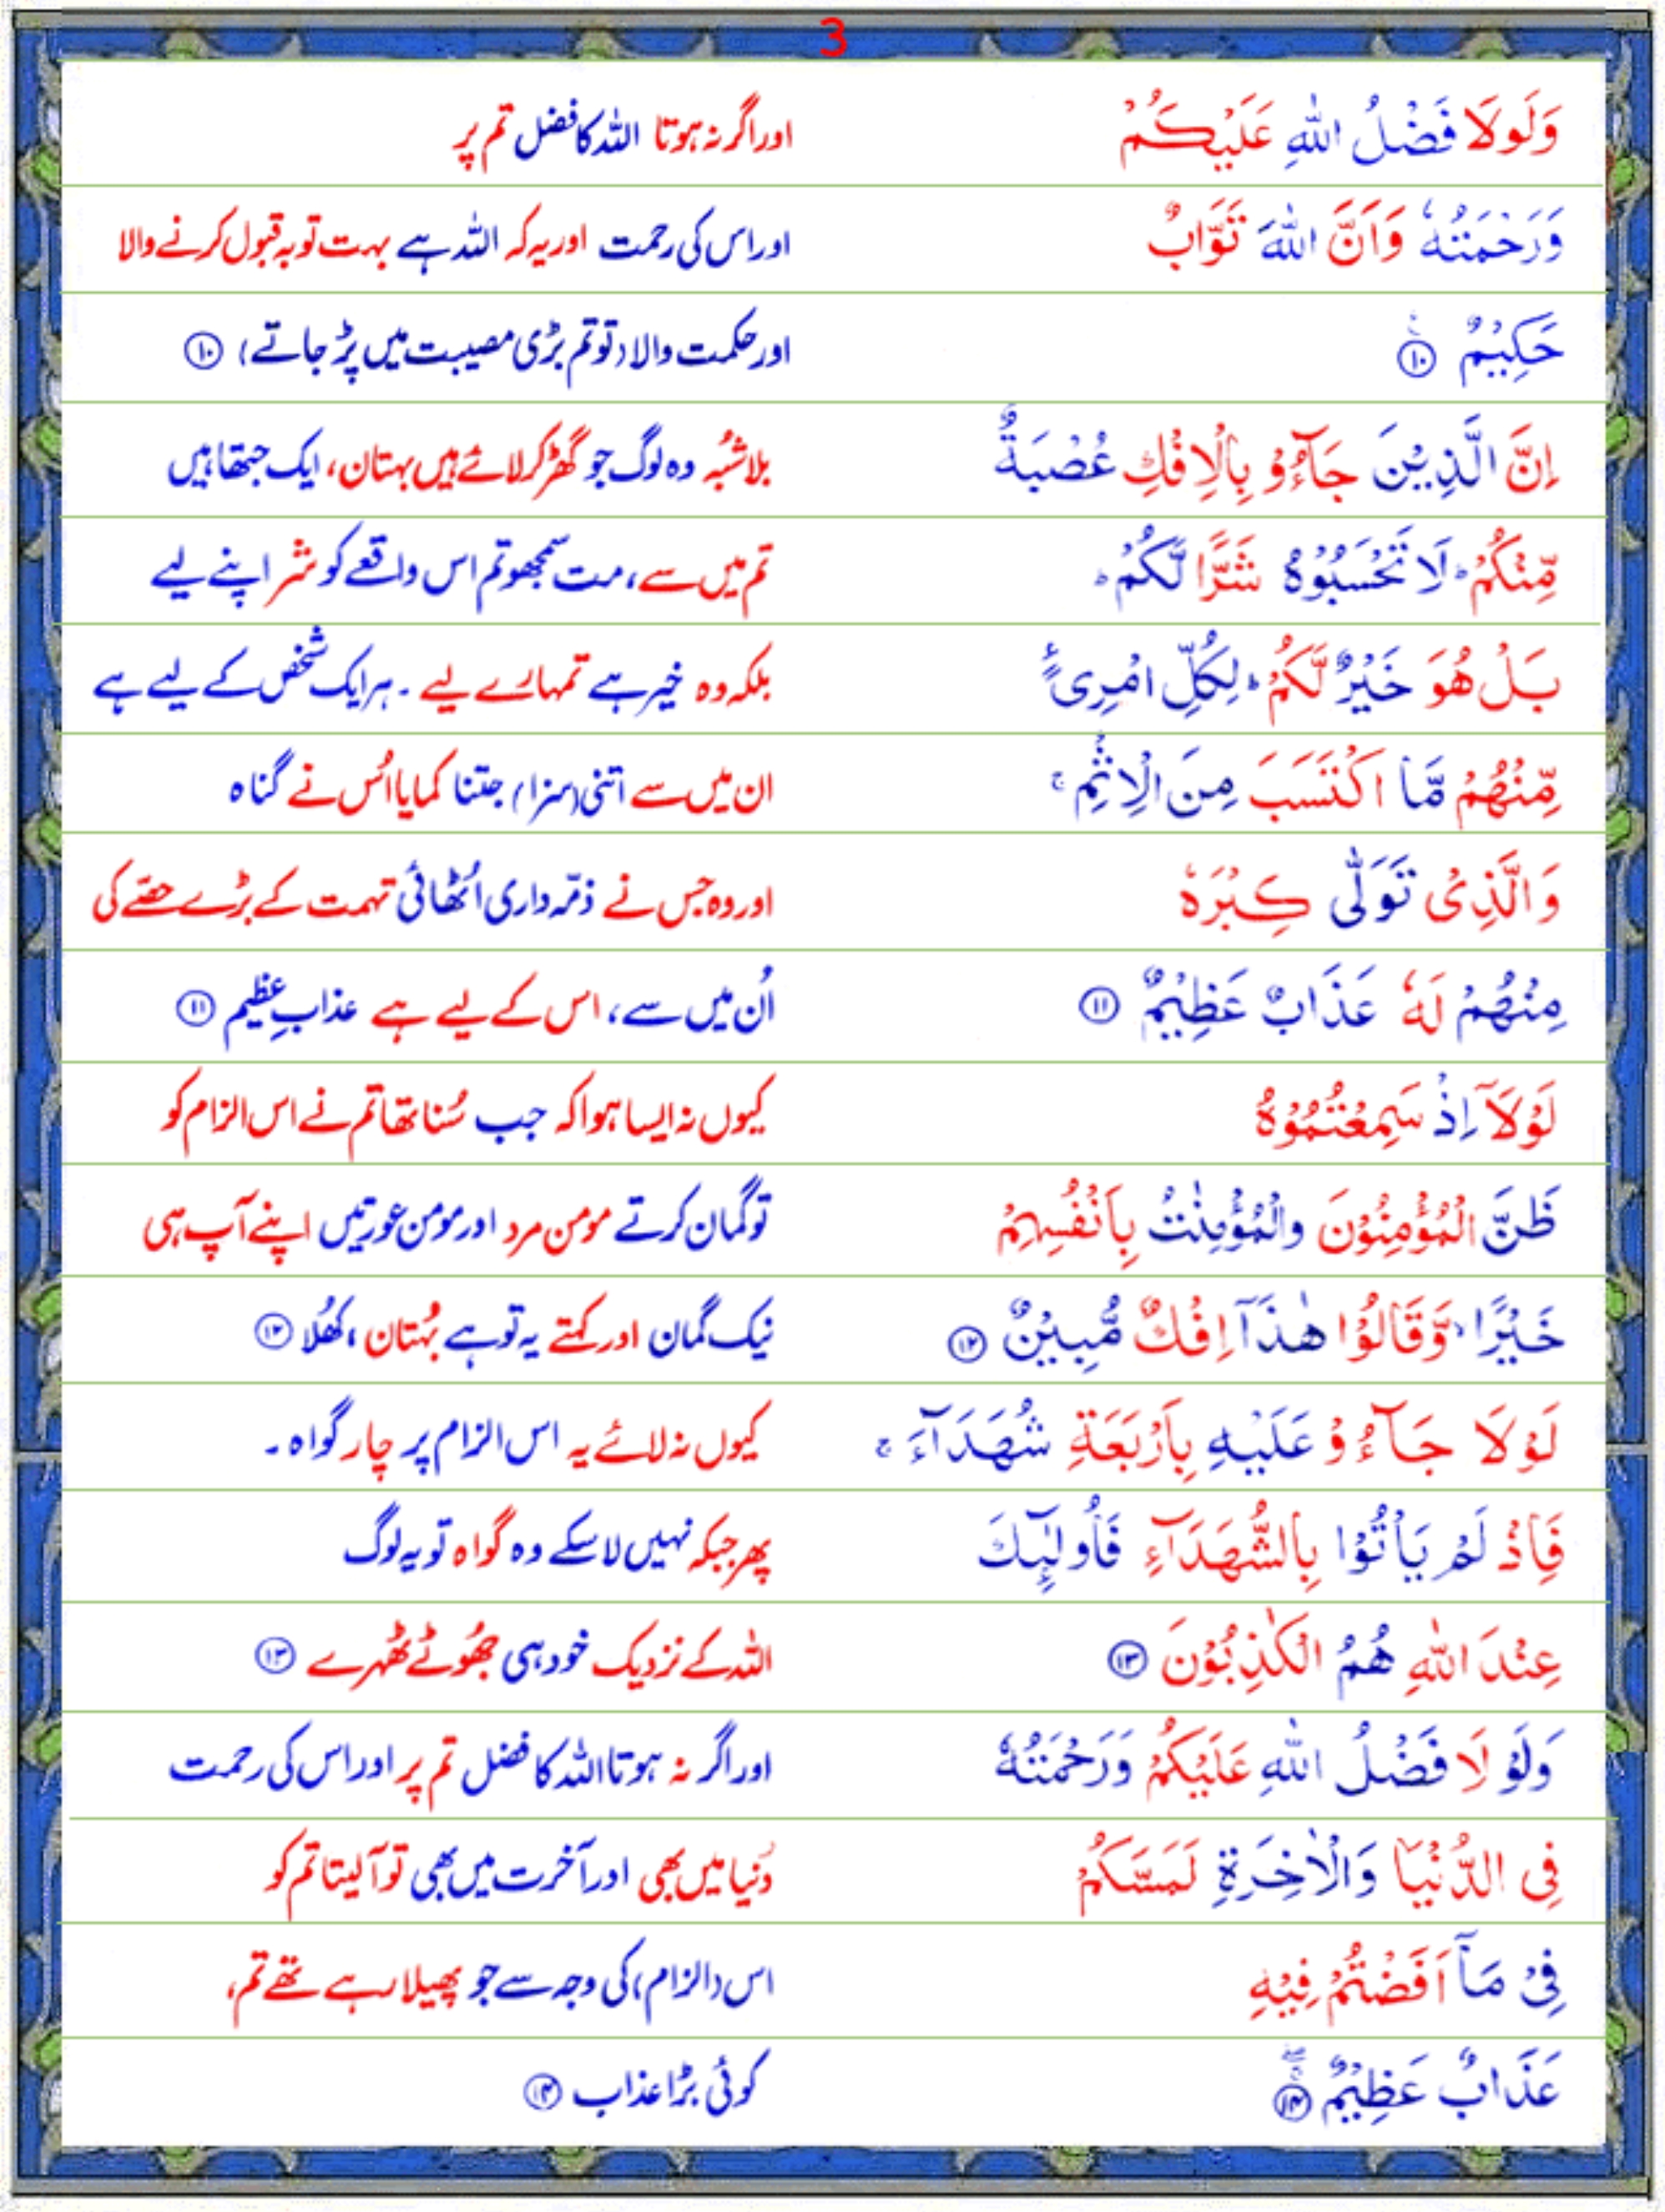 3
وَلَولَا فَضْلُ اللّٰهِ عَلَيْكُمْ اور اگر نہ ہوتا اللہ کا فضل تم پر
وَرَحْمَتُهٗ وَاَنَّ اللّٰهَ تَوَّابٌ اور اس کی رحمت اور یہ کہ اللہ ہے بہت توبہ قبول کرنے والا
حَكِيْمٌ ⑩ اور حکمت والا (تو تم بڑی مصیبت میں پڑ جاتے) ⑩
اِنَّ الَّذِيْنَ جَآءُوْ بِالْاِفْكِ عُصْبَةٌ بلاشُبہ وہ لوگ جو گھڑ کر لائے ہیں بہتان، ایک جتھا ہیں
مِّنْكُمْ ؕ لَا تَحْسَبُوْهُ شَرًّا لَّكُمْ ؕ تم میں سے، مت سمجھو تم اس واقعے کو شر اپنے لیے
بَلْ هُوَ خَيْرٌ لَّكُمْ ؕ لِكُلِّ امْرِیًٔ بلکہ وہ خیر ہے تمہارے لیے ۔ ہر ایک شخص کے لیے ہے
مِّنْهُمْ مَّا اكْتَسَبَ مِنَ الْاِثْمِ ۚ ان میں سے اتنی (سزا) جتنا کمایا اُس نے گناہ
وَالَّذِیْ تَوَلّٰى كِبْرَهٗ اور وہ جس نے ذمّہ داری اُٹھائی تہمت کے بڑے حصّے کی
مِنْهُمْ لَهٗ عَذَابٌ عَظِيْمٌ ⑪ اُن میں سے، اس کے لیے ہے عذابِ عظیم ⑪
لَوْلَآ اِذْ سَمِعْتُمُوْهُ کیوں نہ ایسا ہوا کہ جب سُنا تھا تم نے اس الزام کو
ظَنَّ الْمُؤْمِنُوْنَ والْمُؤْمِنٰتُ بِاَنْفُسِهِمْ تو گمان کرتے مومن مرد اور مومن عورتیں اپنے آپ ہی
خَيْرًا ۙ وَّقَالُوْا هٰذَآ اِفْكٌ مُّبِيْنٌ ⑫ نیک گمان اور کہتے یہ تو ہے بُہتان، کھُلا ⑫
لَوْلَا جَآءُوْ عَلَيْهِ بِاَرْبَعَةِ شُهَدَآءَ ۚ کیوں نہ لائے یہ اس الزام پر چار گواہ ۔
فَاِذْ لَمْ يَاْتُوْا بِالشُّهَدَآءِ فَاُولٰٓئِكَ پھر جبکہ نہیں لا سکے وہ گواہ تو یہ لوگ
عِنْدَ اللّٰهِ هُمُ الْكٰذِبُوْنَ ⑬ اللہ کے نزدیک خود ہی جھُوٹے ٹھہرے ⑬
وَلَوْ لَا فَضْلُ اللّٰهِ عَلَيْكُمْ وَرَحْمَتُهٗ اور اگر نہ ہوتا اللہ کا فضل تم پر اور اس کی رحمت
فِی الدُّنْيَا وَالْاٰخِرَةِ لَمَسَّكُمْ دُنیا میں بھی اور آخرت میں بھی تو آ لیتا تم کو
فِیْ مَآ اَفَضْتُمْ فِيْهِ اس (الزام) کی وجہ سے جو پھیلا رہے تھے تم،
عَذَابٌ عَظِيْمٌ ⑭ کوئی بڑا عذاب ⑭